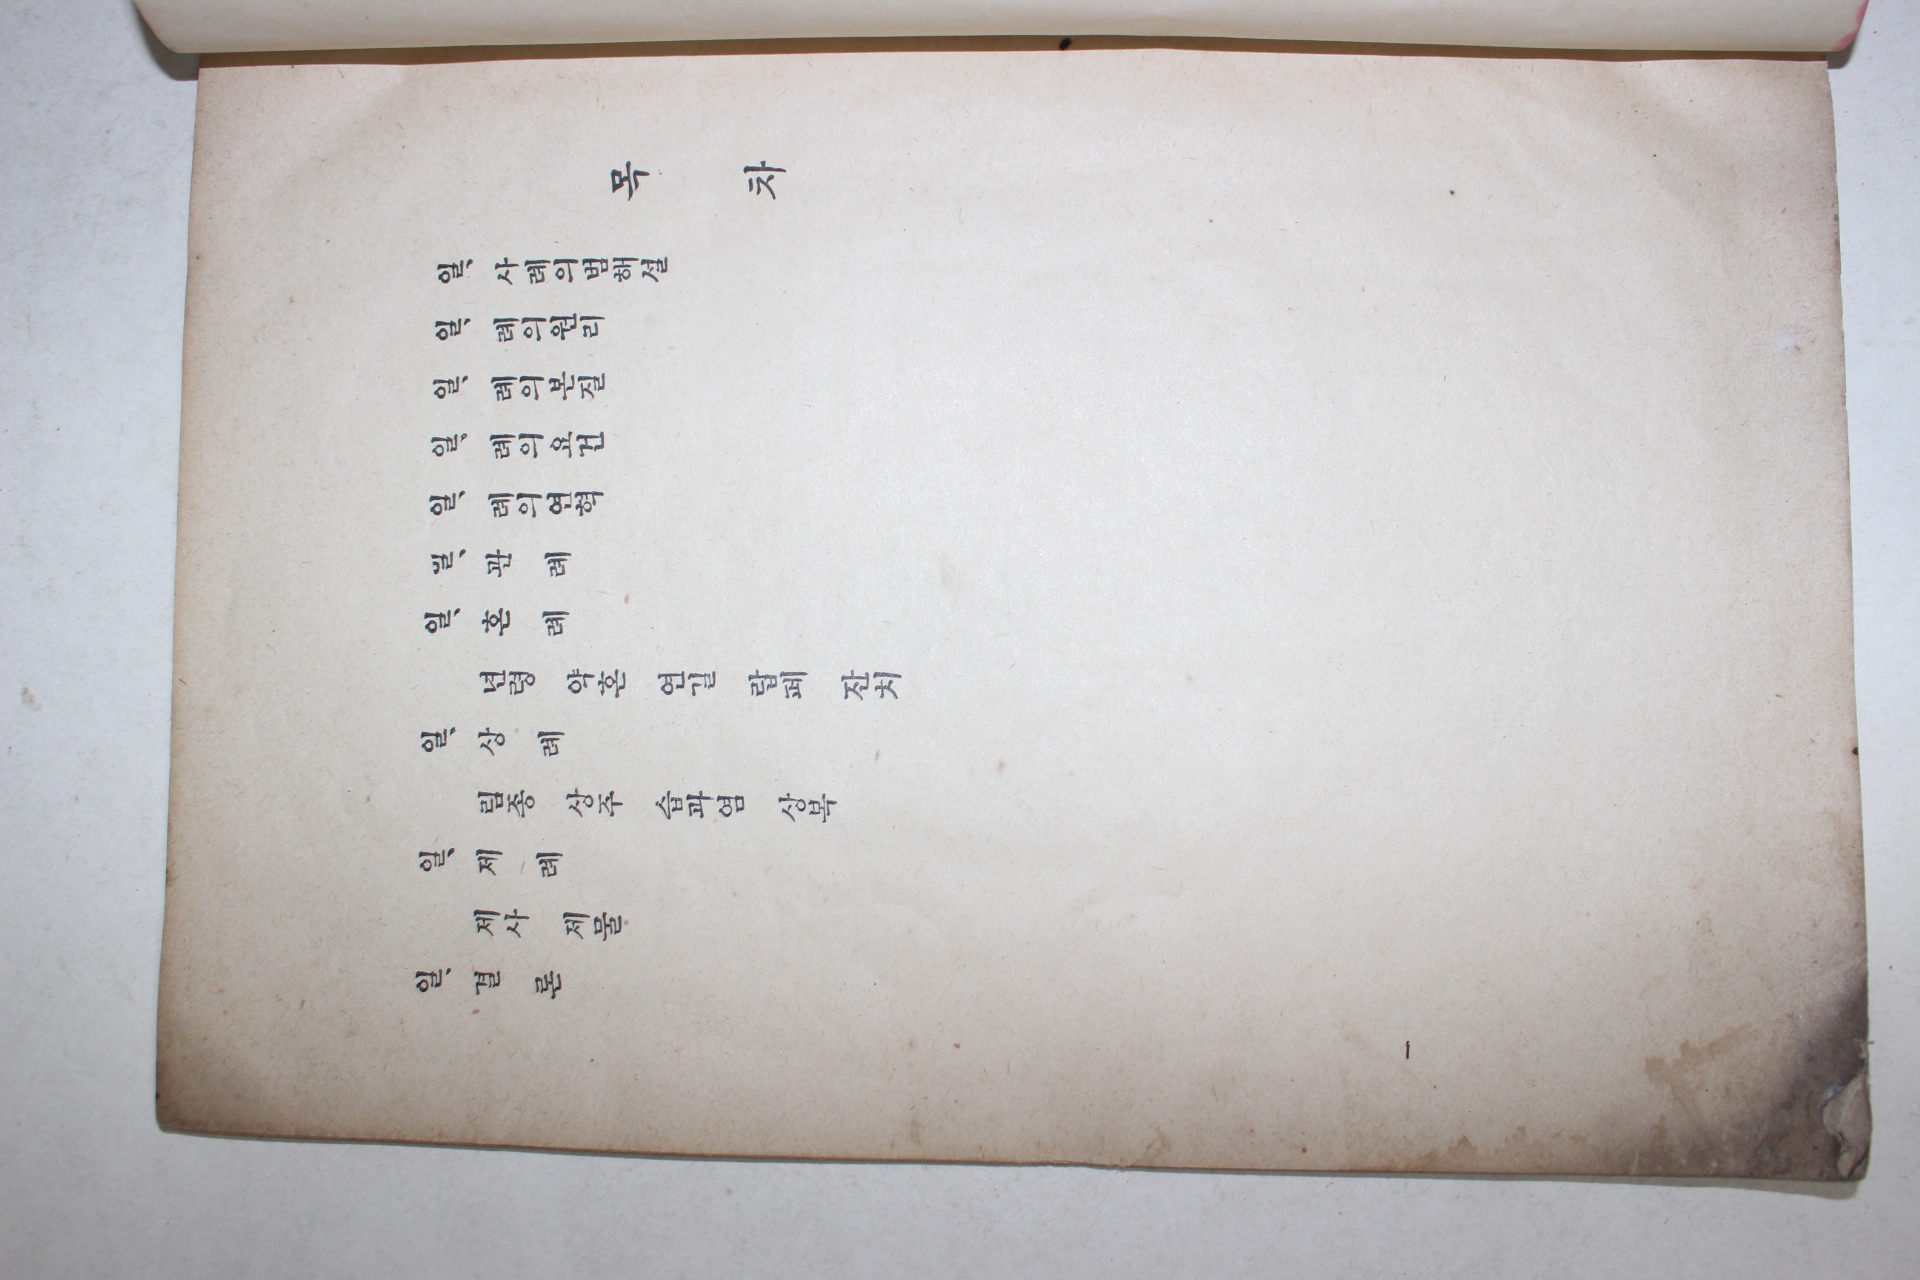 목 차
일、사례의범해설
일、례의원리
일、례의본질
일、례의요건
일、례의연혁
일、관 례
일、혼 례
년령 약혼 연길 랍폐 잔치
일、상 례
림종 상주 습과염 상복
일、제 례
제사 제물
일、결 론
一